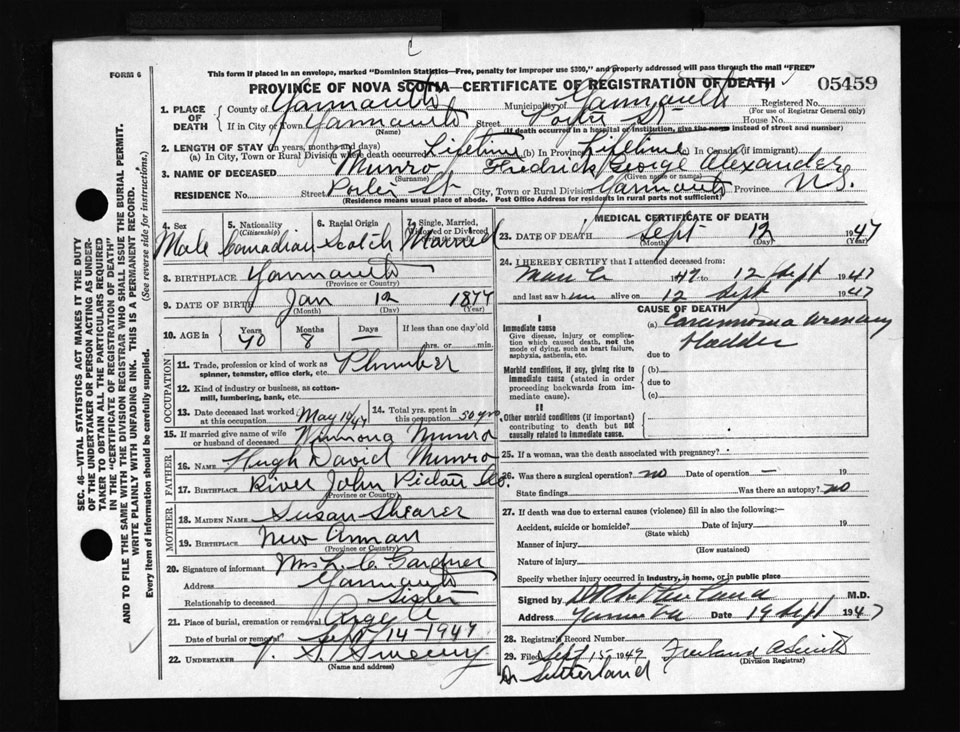 FORM 6
This form if placed in an envelope, marked "Dominion Statistics—Free, penalty for improper use $300," and properly addressed will pass through the mail "FREE"
PROVINCE OF NOVA SCOTIA—CERTIFICATE OF REGISTRATION OF DEATH
05459
1. PLACE OF DEATH
County of Yarmouth Municipality of Yarmouth Registered No.
(For use of Registrar General only)
If in City or Town Yarmouth Street Porter St House No.
(Name) (If death occurred in a hospital or institution, give the name instead of street and number)
2. LENGTH OF STAY (in years, months and days)
(a) In City, Town or Rural Division where death occurred Lifetime (b) In Province Lifetime In Canada (if immigrant)
3. NAME OF DECEASED Munro Fredrick George Alexander
(Surname) (Given name or names)
RESIDENCE No. Street Porter St City, Town or Rural Division Yarmouth Province N.S.
(Residence means usual place of abode. Post Office Address for residents in rural parts not sufficient)
4. Sex 5. Nationality (Citizenship) 6. Racial Origin 7. Single, Married, Widowed or Divorced
Male Canadian Scotch Married
8. BIRTHPLACE Yarmouth
(Province or Country)
9. DATE OF BIRTH Jan 12 1877
(Month) (Day) (Year)
10. AGE in Years Months Days If less than one day old
70 8 — hrs. or min.
OCCUPATION
11. Trade, profession or kind of work as spinner, teamster, office clerk, etc. Plumber
12. Kind of industry or business, as cotton-mill, lumbering, bank, etc.
13. Date deceased last worked at this occupation May 10/47 14. Total yrs. spent in this occupation 50 yrs
15. If married give name of wife or husband of deceased Winnona Munro
FATHER
16. Name Hugh David Munro
17. BIRTHPLACE River John Pictou Co.
(Province or Country)
MOTHER
18. MAIDEN NAME Susan Shearer
19. BIRTHPLACE New Annan
(Province or Country)
20. Signature of informant Mrs L. C. Gardner
Address Yarmouth
Relationship to deceased Sister
21. Place of burial, cremation or removal
Date of burial or removal Sept 14-1947
22. UNDERTAKER V. S. Sweeny
(Name and address)
MEDICAL CERTIFICATE OF DEATH
23. DATE OF DEATH Sept 12 1947
(Month) (Day) (Year)
24. I HEREBY CERTIFY that I attended deceased from:
47 to 12 Sept 1947
and last saw him alive on 12 Sept 1947
CAUSE OF DEATH
I
Immediate cause
Give disease, injury or complication which caused death, not the mode of dying, such as heart failure, asphyxia, asthenia, etc.
(a) Carcinoma urinary bladder
due to
Morbid conditions, if any, giving rise to immediate cause (stated in order proceeding backwards from immediate cause).
(b)
due to
(c)
II
Other morbid conditions (if important) contributing to death but not causally related to immediate cause.
25. If a woman, was the death associated with pregnancy?
26. Was there a surgical operation? no Date of operation — 19
State findings Was there an autopsy? no
27. If death was due to external causes (violence) fill in also the following:—
Accident, suicide or homicide? Date of injury 19
(State which)
Manner of injury
(How sustained)
Nature of injury
Specify whether injury occurred in industry, in home, or in public place
Signed by M.D.
Address Date 19 Sept 1947
28. Registrar's Record Number
29. Filed Sept 15 1947 Freeland A Smith
(Division Registrar)
Dr Sutherland
SEC. 46—VITAL STATISTICS ACT MAKES IT THE DUTY
OF THE UNDERTAKER OR PERSON ACTING AS UNDER-
TAKER TO OBTAIN ALL THE PARTICULARS REQUIRED
IN THE "CERTIFICATE OF REGISTRATION OF DEATH"
AND TO FILE THE SAME WITH THE DIVISION REGISTRAR WHO SHALL ISSUE THE BURIAL PERMIT.
WRITE PLAINLY WITH UNFADING INK. THIS IS A PERMANENT RECORD.
Every item of information should be carefully supplied. (See reverse side for instructions.)